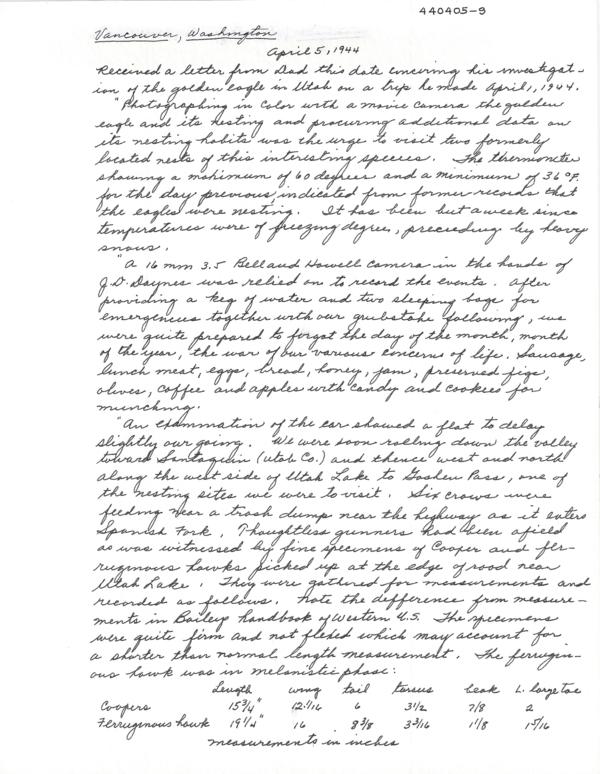 440405-9
Vancouver, Washington
April 5, 1944
Received a letter from Dad this date concuring his investigat-
ion of the golden eagle in Utah on a trip he made April 1, 1944.
"Photographing in color with a movie camera the golden
eagle and its nesting and procuring additional data on
its nesting habits was the urge to visit two formerly
located nests of this interesting species. The thermometer
showing a maximum of 60 degrees and a minimum of 36°F.
for the day previous, indicated from former records that
the eagles were nesting. It has been but a week since
temperatures were of freezing degree, preceeding by heavy
snows.
"A 16 mm 3.5 Bell and Howell camera in the hands of
J.D. Daynes was relied on to record the events. After
providing a keg of water and two sleeping bags for
emergencies together with our grubstake following, we
were quite prepared to forget the day of the month, month
of the year, the war of our various concerns of life. Sausage,
lunch meat, eggs, bread, honey, jam, preserved figs,
olives, coffee and apples with candy and cookies for
munching.
"An examination of the car showed a flat to delay
slightly our going. We were soon rolling down the valley
toward Santaquin (Utah Co.) and thence west and north
along the west side of Utah Lake to Goshen Pass, one of
the nesting sites we were to visit. Six crows were
feeding near a trash dump near the highway as it enters
Spanish Fork. Thoughtless gunners had been afield
as was witnessed by fine specimens of Cooper and fer-
ruginous hawks picked up at the edge of road near
Utah Lake. They were gathered for measurements and
recorded as follows. Note the difference from measure-
ments in Bailey Handbook of Western U.S. The specimens
were quite firm and not flexed which may account for
a shorter than normal length measurement. The ferrugin-
ous hawk was in melanistic phase:
Length wing tail tarsus beak L. large toe
Coopers 15 3/4" 12 1/16 6 3 1/2 7/8 2
Ferruginous hawk 19 1/4" 16 8 3/8 3 3/16 1 1/8 1 5/16
measurements in inches